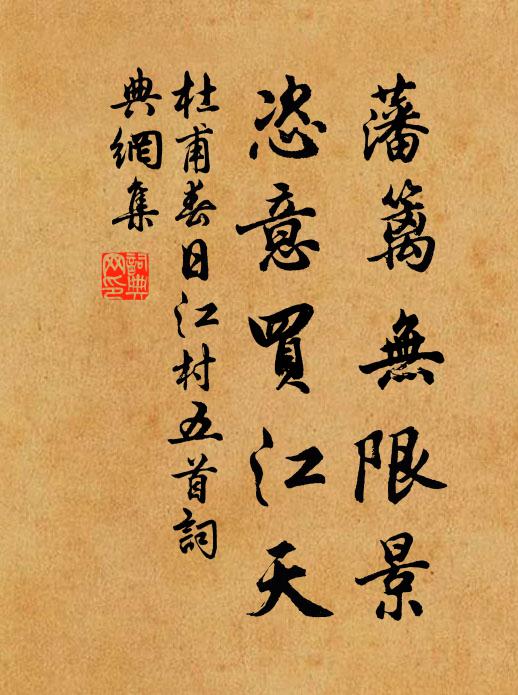 藩籬無限景
恣意買江天
杜甫春日江村五首詞
典網集
詞典
网印